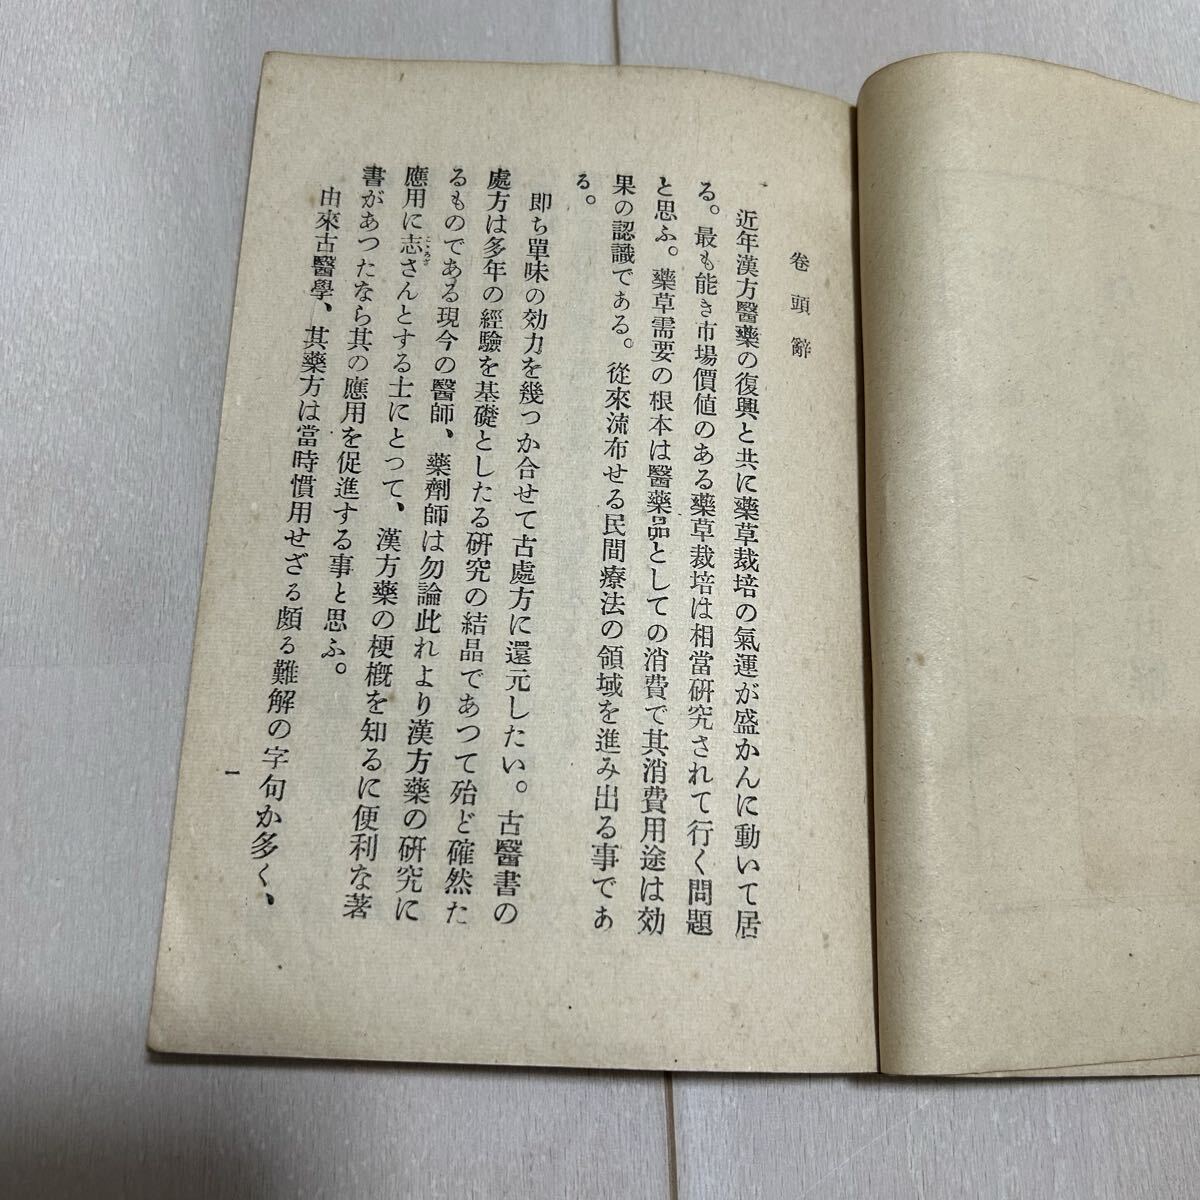 卷頭辭
近年漢方醫藥の復興と共に藥草栽培の氣運が盛かんに動いて居
る。最も能き市場價値のある藥草栽培は相當硏究されて行く問題
と思ふ。藥草需要の根本は醫藥品としての消費で其消費用途は効
果の認識である。從來流布せる民間療法の領域を進み出る事であ
る。
即ち單味の効力を幾つか合せて古處方に還元したい。古醫書の
處方は多年の經驗を基礎としたる硏究の結晶であつて殆ど確然た
るものである現今の醫師、藥劑師は勿論此れより漢方藥の硏究に
應用に志さんとする士にとつて、漢方藥の梗槪を知るに便利な著
こゝろざ
書があつたなら其の應用を促進する事と思ふ。
由來古醫學、其藥方は當時慣用せざる頗る難解の字句か多く、
一